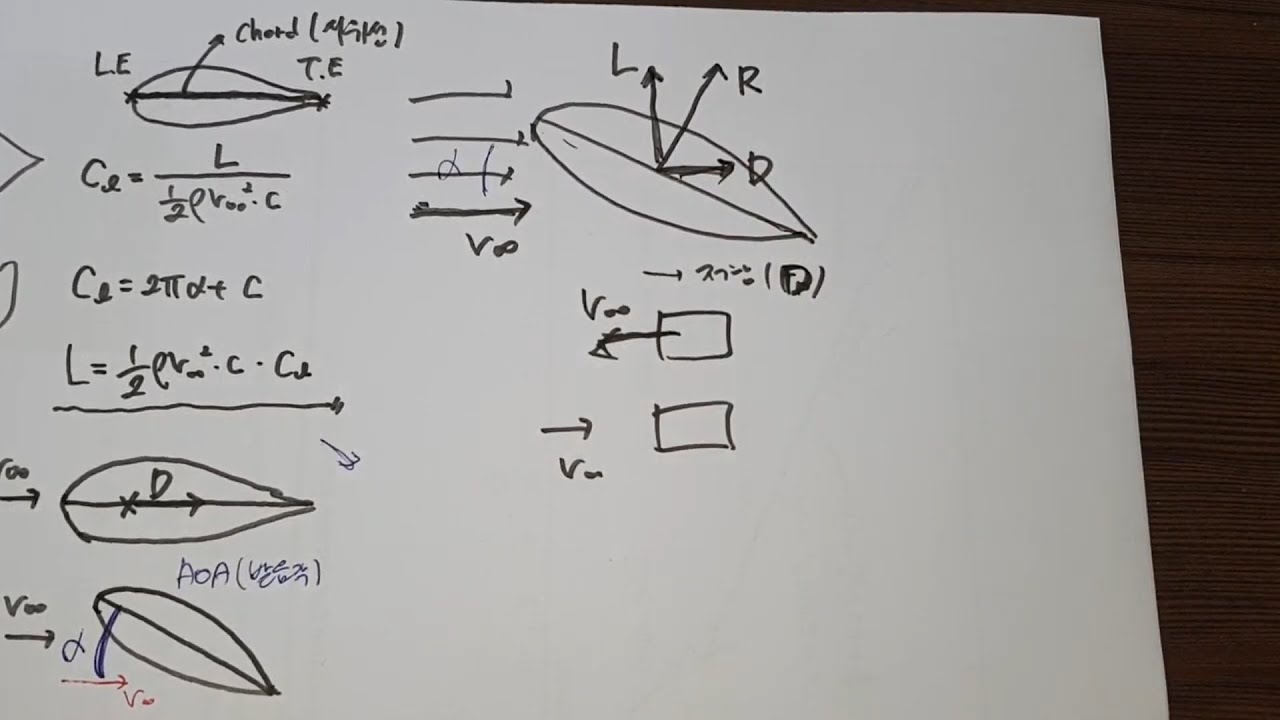 Chord (시위선)
L.E
T.E
Cl = L / ½ρV∞²·c
Cl = 2πα + C
L = ½ρV∞²·c · Cl
V∞
D
AOA (받음각)
V∞
α
V∞
L
R
D
α
V∞
→
V∞
V∞